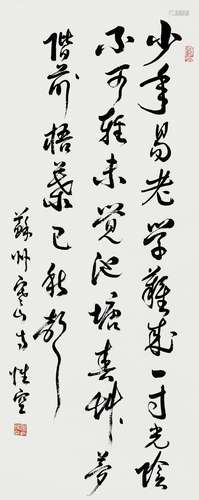 少年易老学难成一寸光阴
不可轻未觉池塘春草梦
阶前梧叶已秋声
苏州寒山寺性空